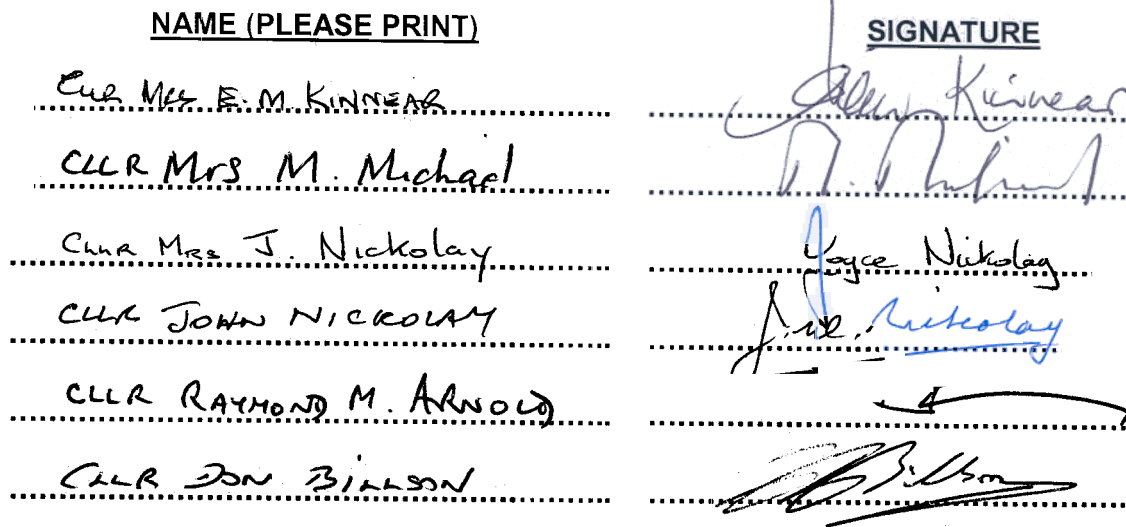 NAME (PLEASE PRINT) SIGNATURE
Cllr Mrs E.M. KINNEAR Kinnear
CLLR Mrs M. Michael M.
Cllr Mrs J. Nickolay Joyce Nickolay
CLLR JOHN NICKOLAY Nickolay
CLLR RAYMOND M. ARNOLD
CLLR DON BILLSON Billson